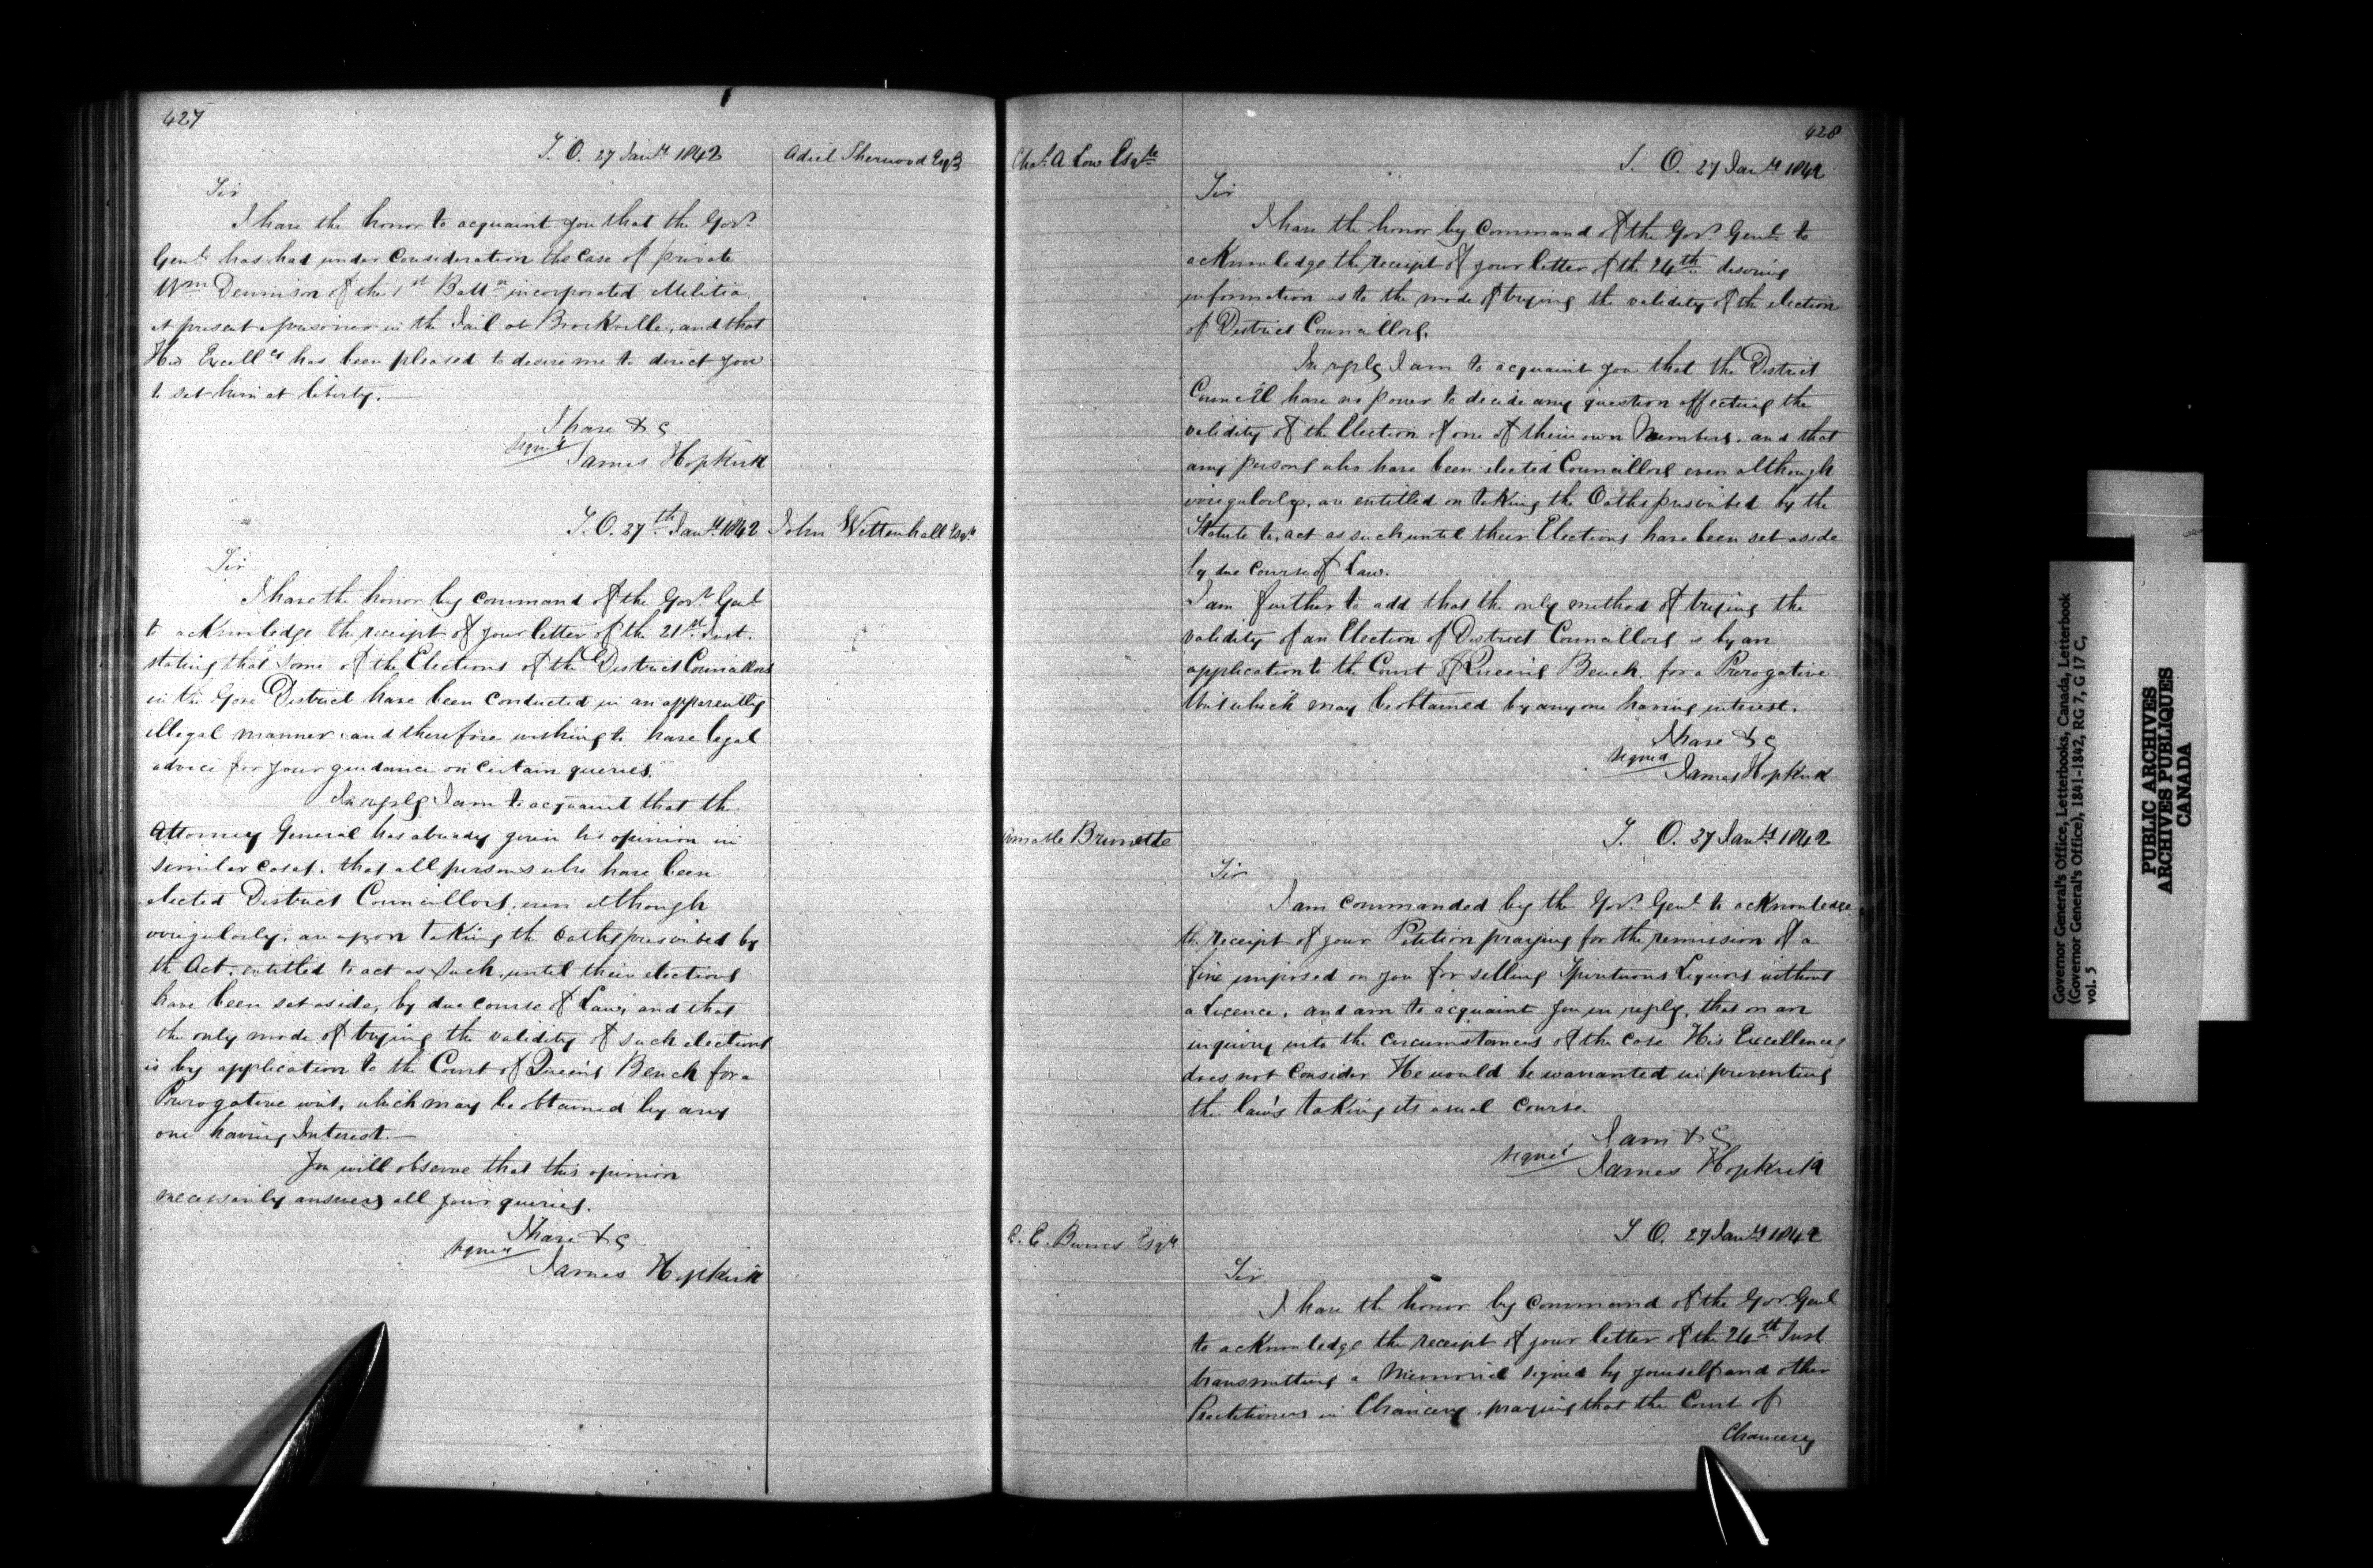 427
S. O. 27 Jany 1842
Adiel Sherwood Esqr
Sir
I have the honor to acquaint you that the Govr
Genl has had under Consideration the Case of private
Wm Dennison of the 1st Battn incorporated Militia
at present a prisoner in the Jail at Brockville, and that
His Excelly has been pleased to desire me to direct you
to set him at liberty.—
I have &c
signed
James Hopkirk
S. O. 27th Jany 1842
John Wettenhall Esqr
Sir
I have the honor by command of the Govr Genl
to acknowledge the receipt of your letter of the 21st Inst.
stating that some of the Elections of the District Councillors
in the Gore District have been conducted in an apparently
illegal manner, and therefore wishing to have legal
advice for your guidance on certain queries.
In reply I am to acquaint that the
Attorney General has already given his opinion in
similar cases, that all persons who have been
elected District Councillors, even although
irregularly, are upon taking the Oaths prescribed by
the Act, entitled to act as such, until their elections
have been set aside, by due course of Law, and that
the only mode of trying the validity of such elections
is by application to the Court of Queen's Bench for a
Prerogative writ, which may be obtained by any
one having Interest.—
You will observe that this opinion
necessarily answers all your queries.
I have &c
signed
James Hopkirk
428
Chas. A Low Esqre
S. O. 27 Jany 1842
Sir
I have the honor by Command of the Govr Genl to
acknowledge the receipt of your letter of the 24th desiring
information as to the mode of trying the validity of the election
of District Councillors.
In reply I am to acquaint you that the District
Council have no power to decide any question affecting the
validity of the Election of one of their own Members, and that
any persons who have been elected Councillors even although
irregularly, are entitled on taking the Oaths prescribed by the
Statute to, act as such until their Elections have been set aside
by due course of Law.
I am further to add that the only method of trying the
validity of an Election of District Councillors is by an
application to the Court of Queen's Bench for a Prerogative
Writ which may be obtained by any one having interest.
I have &c
signed
James Hopkirk
Amable Brunette
S. O. 27 Jany 1842
Sir
I am commanded by the Govr Genl to acknowledge
the receipt of your Petition praying for the remission of a
fine imposed on you for selling Spirituous Liquors without
a Licence, and am to acquaint you in reply, that on an
inquiry into the circumstances of the case His Excellency
does not consider He would be warranted in preventing
the law's taking its usual course.
I am &c
signed
James Hopkirk
E. Burns Esqr
S. O. 27 Jany 1842
Sir
I have the honor by command of the Gov. Genl
to acknowledge the receipt of your letter of the 24th Inst
transmitting a Memorial signed by yourself and other
Practitioners in Chancery, praying that the Court of
Chancery
Governor General's Office, Letterbooks, Canada, Letterbook
(Governor General's Office), 1841-1842, RG 7, G 17 C,
vol. 5
PUBLIC ARCHIVES
ARCHIVES PUBLIQUES
CANADA